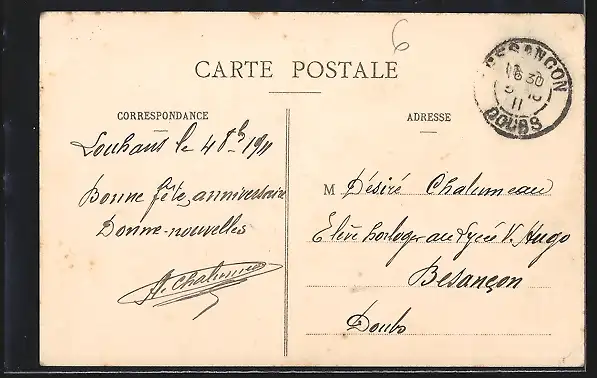 6
CARTE POSTALE
BESANÇON
DOUBS
CORRESPONDANCE
ADRESSE
Louhans le 4 8bre 1911
Bonne fête, anniversaire
Donne-nouvelles
Chalumeau
M Désiré Chalumeau
Elève horloger au Lycée V. Hugo
Besançon
Doubs